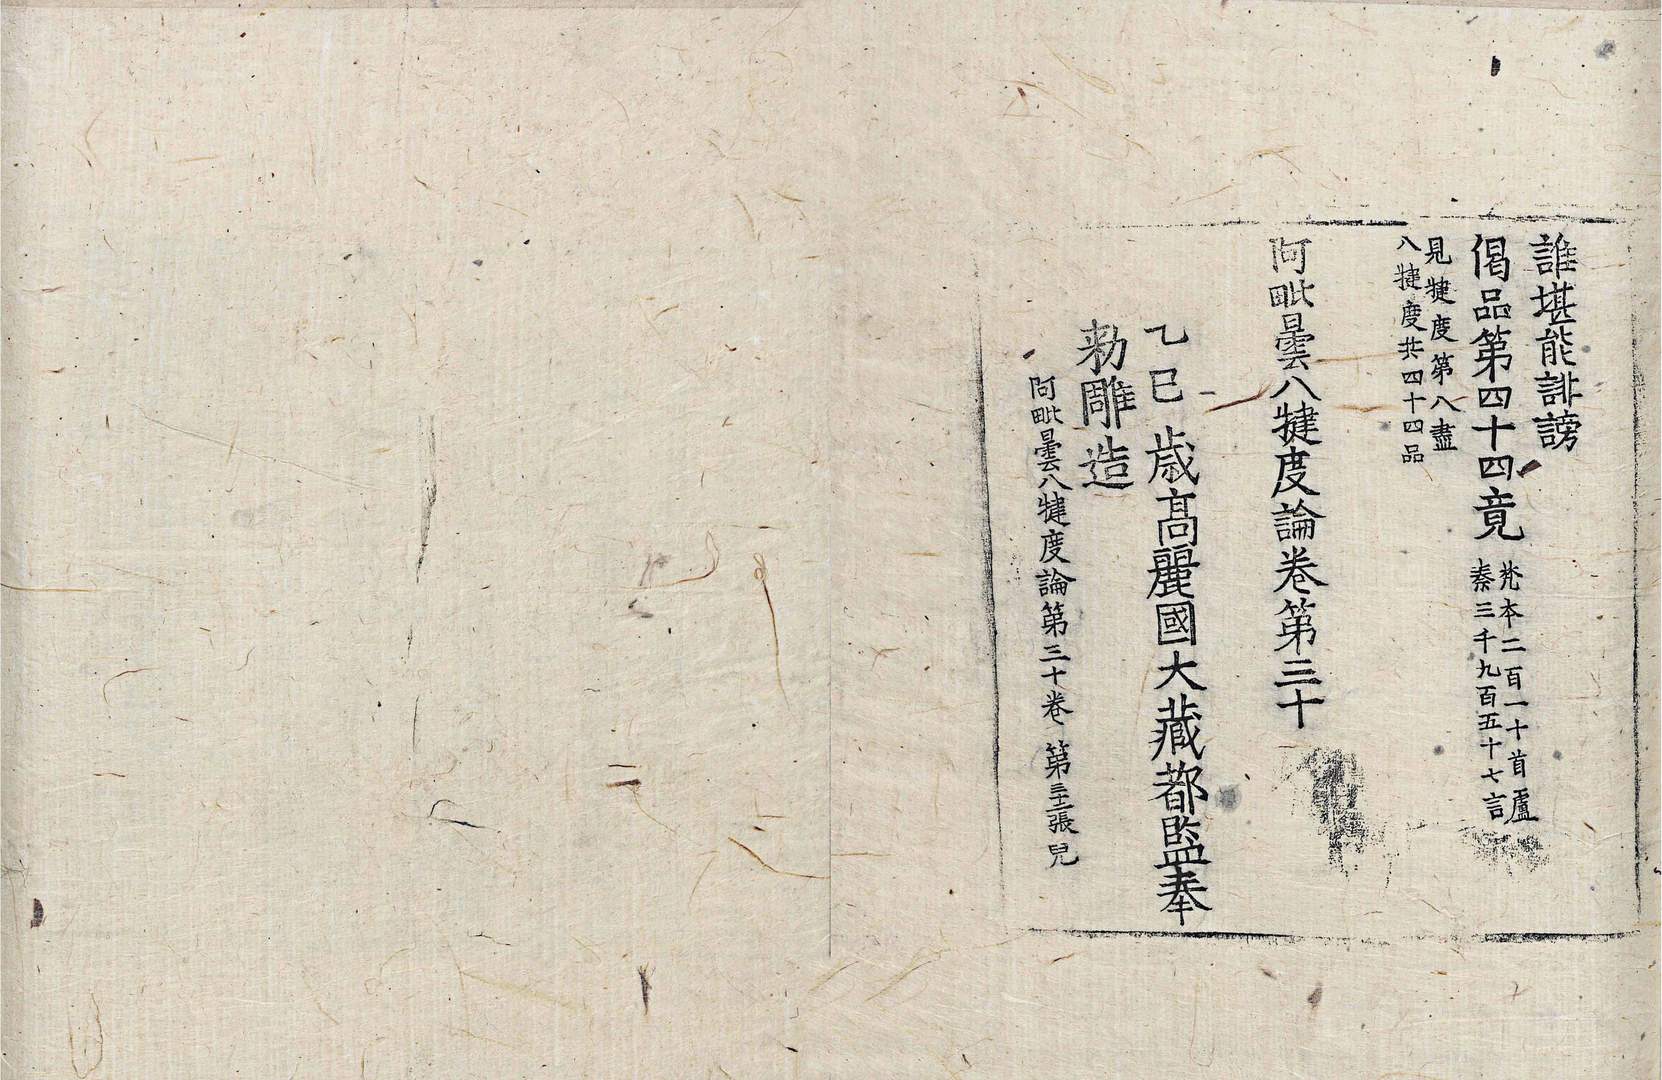 誰堪能誹謗
偈品第四十四竟
梵本二百一十首盧
秦三千九百五十七言
見犍度第八盡
八犍度共四十四品
阿毗曇八犍度論卷第三十
乙巳歲高麗國大藏都監奉
勅雕造
阿毗曇八犍度論第三十卷 第三十二張 兒